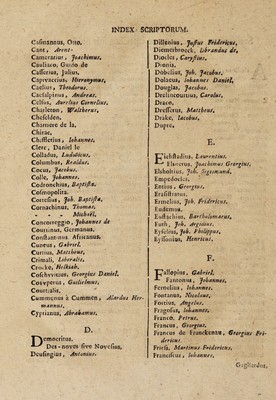 INDEX SCRIPTORUM.
Casinannus, Otto.
Cant, Arent.
Camerarius, Joachimus.
Cauliaco, Guido de
Casserius, Julius.
Capivaccius, Hieronymus,
Caelius, Theodorus.
Caesalpinus, Andreas.
Celsus, Aurelius Cornelius,
Charleton, Walcherus,
Cheselden.
Charriere de la,
Chirac,
Chiffletius, Iohannes,
Clerc, Daniel le
Colladus, Ludovicus,
Columbus, Realdus,
Cocus, Jacobus,
Colle, Johannes,
Codronchius, Baptista.
Cosmopolita.
Cortesius, Joh. Baptista.
Cornachinus, Thomas.
Michaël,
Concorreggio, Johannes de
Courtinus, Germanus.
Constantinus Africanus,
Cuneus, Gabriel.
Curtius, Mattheus,
Crimali, Liberalis,
Crocke, Helkiah,
Coschwitzus, Georgius Daniel,
Covvperus, Gulielmus,
Courtialis,
Cummenus à Cummen, Alardus Her-
mannus,
Cyprianus, Abrahamus.
D.
Democritus.
Des-noves sive Novesius,
Deusingius, Antonius.
Dillenius, Justus Fridericus,
Diemerbroeck, Isbrandus de,
Diocles, Carystius,
Dionis,
Döbelius, Joh. Jacobus.
Dolaeus, Iohannes Daniel,
Douglas, Jacobus.
Declincourtius, Carolus,
Draco.
Dresserus, Mattheus,
Drake, Iacobus,
Dupre,
E.
Eichstadius, Laurentius.
Elsnerus, Joachimus Georgius,
Elsholtius, Joh. Sigismund,
Empedocles,
Entius, Georgius,
Erasistratus.
Ermelius, Joh. Fridericus,
Eudemus,
Eustachius, Bartholomaeus,
Euth, Joh. Arguinus.
Eyselius, Joh. Philippus,
Eyssonius, Henricus.
F.
Fallopius, Gabriel,
Fantonus, Johannes,
Fernelius, Iohannes,
Fontanus, Nicolaus,
Fortius, Angelus.
Fragosius, Iohannes,
Franco, Petrus,
Francus, Georgius,
Francus de Franckenau, Georgius Fri-
dericus,
Friess, Martinus Fridericus,
Franciscus, Iohannes,
Gagliardus,